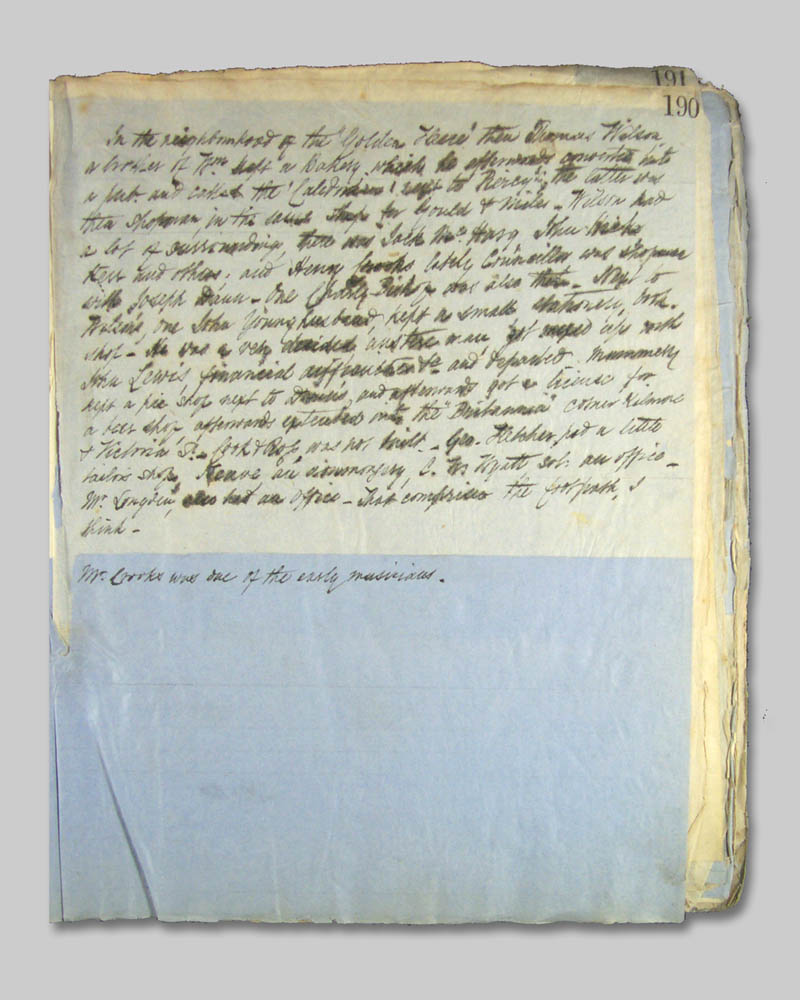 191
190
In the neighbourhood of the "Golden Fleece" then Thomas Wilson
a brother of Wm kept a Bakery which he afterwards converted into
a pub. and called the "Caledonian" next to Piercy's, the latter was
then shopman in the same shop for Gould & Miles - Wilson had
a lot of surroundings, there was Jack Mc John Hicks
Kerr and others, and Henry Crooks lately Councillor was shopman
with Joseph Dann - One Charley Bishop was also there - Next to
Wilson's, one John Younghusband, kept a small stationery, book
shop - He was a very decided austere man, got mixed up with
John Lewis financial &c and departed. Mummery
kept a pie shop next to and afterwards got a license for
a beer shop afterwards extended into the "Britannia" corner Kilmore
& Victoria St. - Cook & Ross was not built - Geo. Fletcher had a little
tailors shop, an ironmongery, C. Wyatt sol: an office -
Mr. Longden, also had an office - that comprises the footpath, I
think -
Mr. Crooks was one of the early musicians.